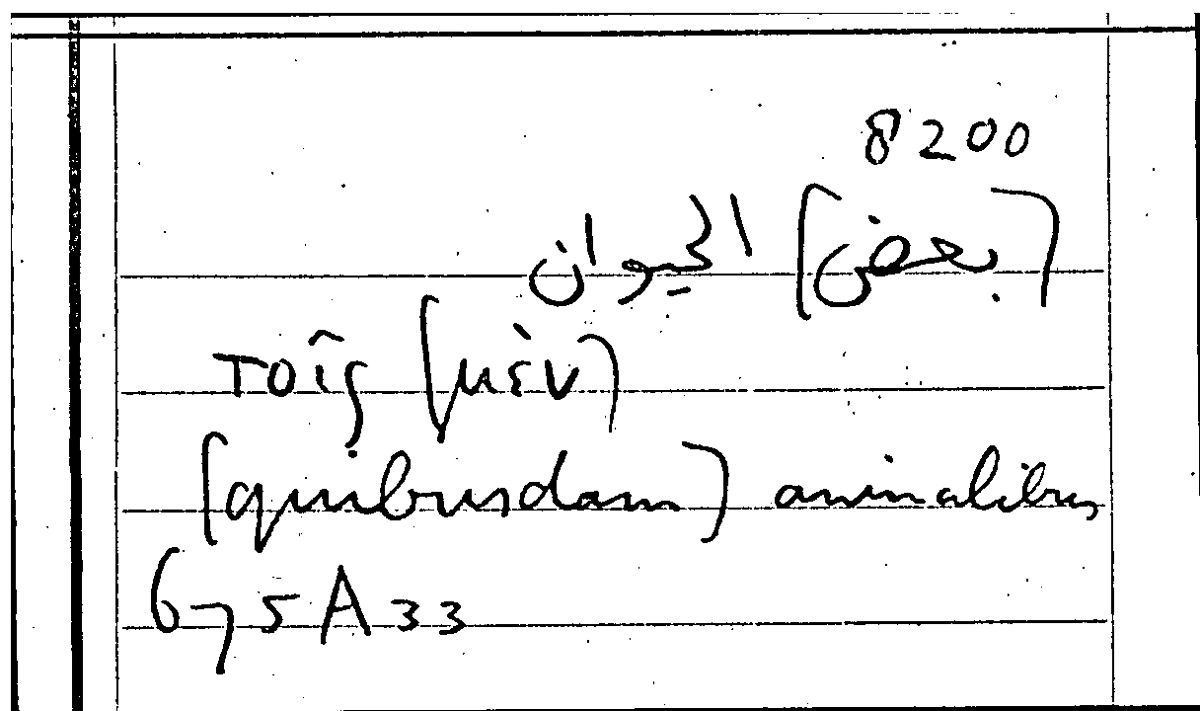 8200
[بعض] الحيوان
τοῖς [μὲν]
[quibusdam] animalibus
675A33